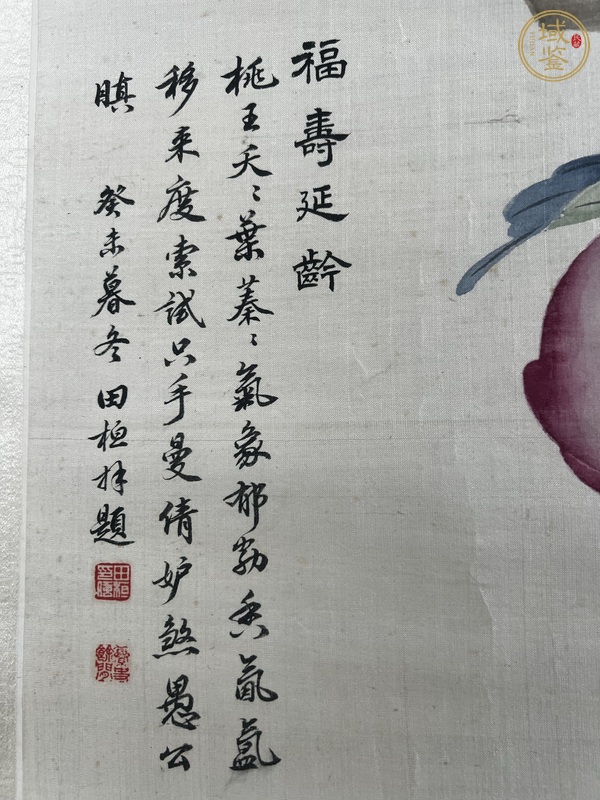 福壽延齡
桃王夭〻葉蓁〻氣象郁勃香氤氳
移来度索試只手曼倩妒煞愚公
瞋 癸未暮冬田桓拜題
田桓
域鑒